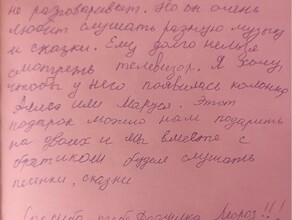 не разговаривает. Но он очень
любит слушать разную музыку
и сказки. Ему долго нельзя
смотреть телевизор. Я хочу
чтобы у него появилась колонка
Алиса или Маруся. Этот
подарок можно нам подарить
на двоих и мы вместе с
братиком будем слушать
песенки, сказки
Спасибо тебе Дедушка Мороз!!!